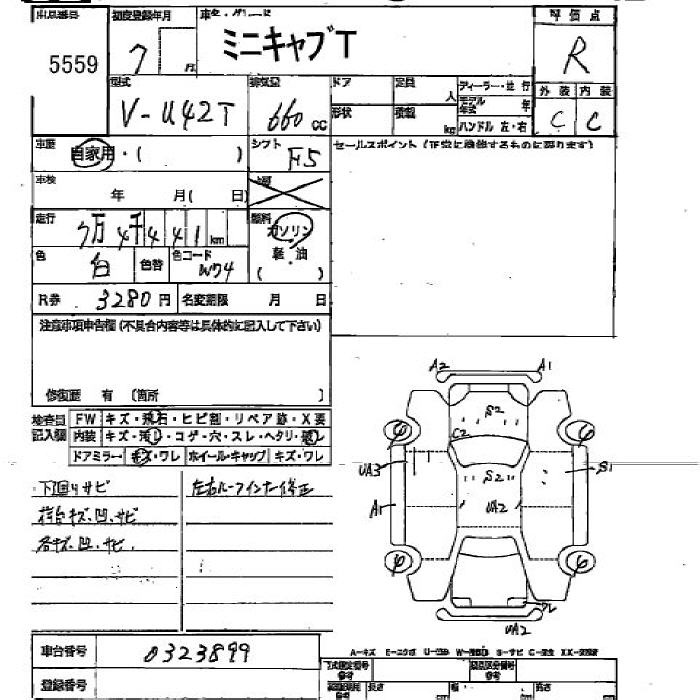 出品番号
5559
初度登録年月
7
月
車名・グレード
ミニキャブT
評価点
R
型式
V-U42T
排気量
660
cc
ドア
定員
人
形状
積載
kg
ディーラー・並 行
モデル
年式
年
ハンドル 左・右
外装
内装
C
C
車歴
自家用・(
)
シフト
F5
セールスポイント (正常に機能するものに限ります)
車検
年
月(
日)
走行
万
千
4
4
1
km
燃料
ガソリン
軽・油
(
)
色
白
色替
色コード
W74
R券
3280円
名変期限
月
日
注意事項申告欄 (不具合内容等は具体的に記入して下さい)
修復歴 有 〔箇所
〕
検査員
記入欄
FW
キズ・飛石・ヒビ割・リペア跡・X要
内装
キズ・汚レ・コゲ・穴・スレ・ヘタリ・
ドアミラー
キズ・ワレ
ホイールキャップ
キズ・ワレ
下回りサビ
左右ルーフインナー修正
荷台キズ、凹、サビ
各キズ、凹、サビ
A2
A1
S2
C2
UA3
S2
S1
A1
UA2
UA2
A-キズ
S-サビ
車台番号
0323899
登録番号
長さ
幅
高さ